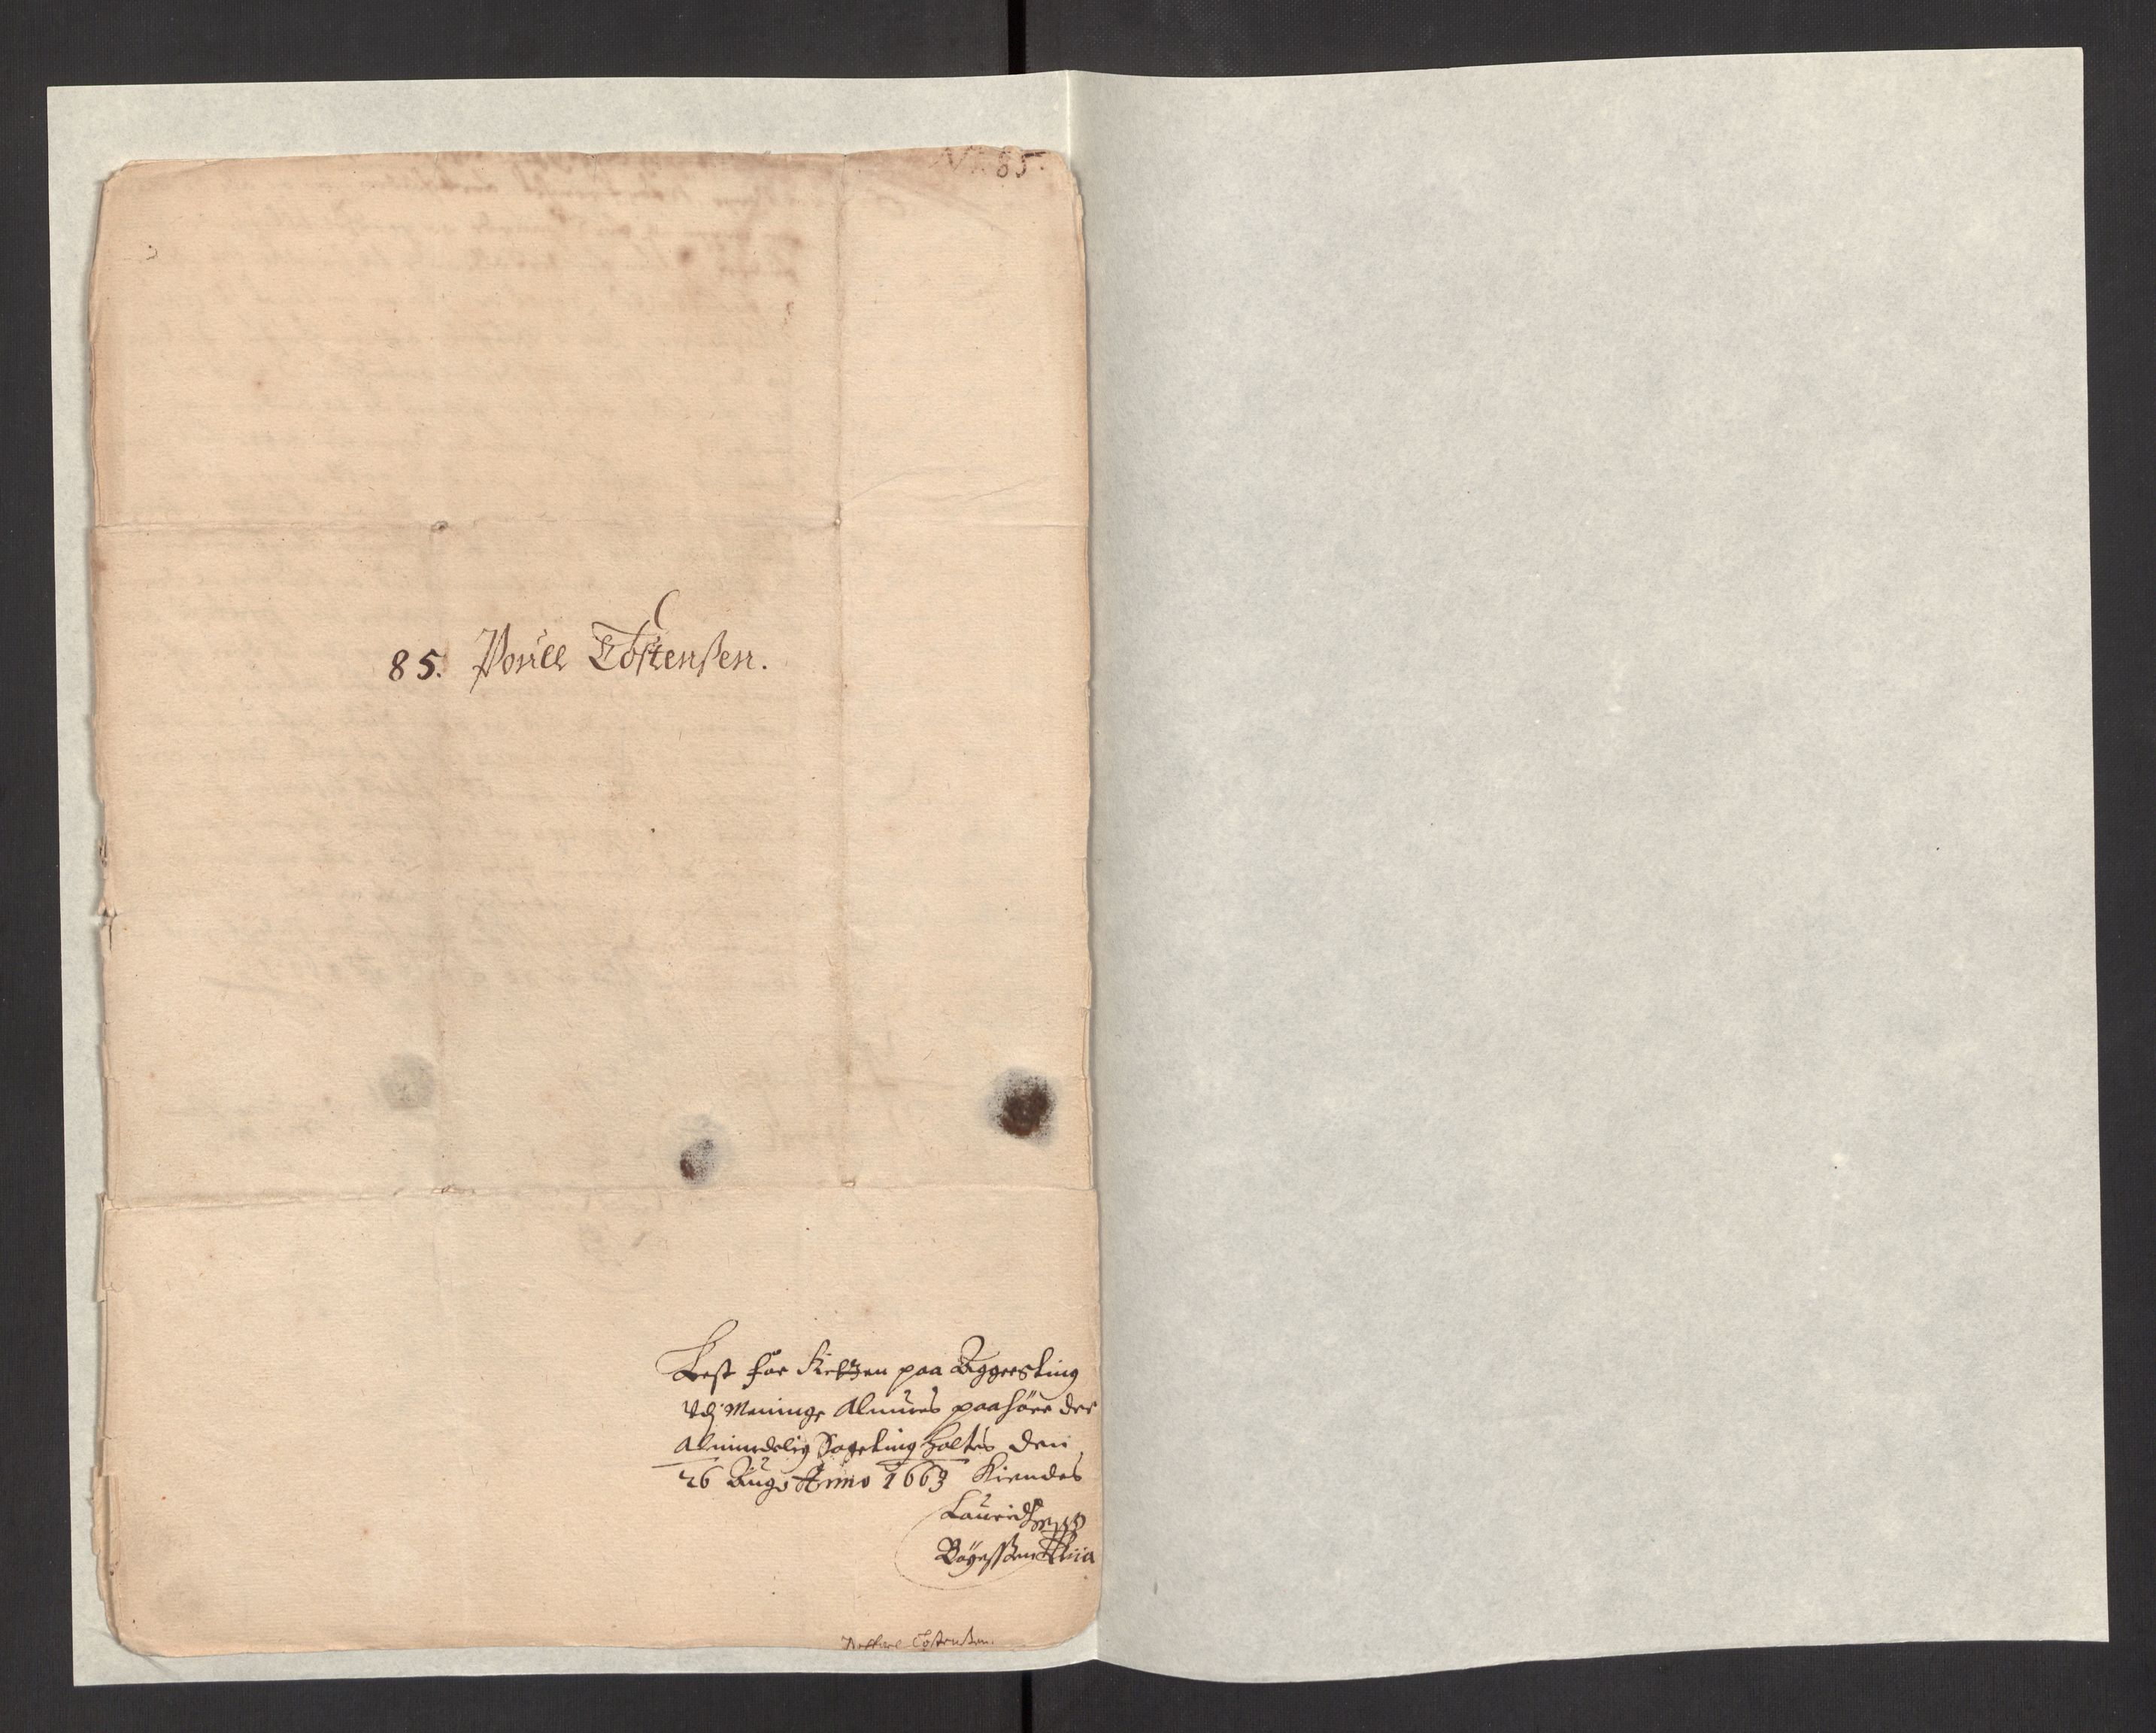 N. 85.
85. Pouell Tostenßen.
Lest for Retten paa Aggersting
Udj Meninge Almues paahøre der
Almindelig Sageting holtes den
26 Aug: Anno 1663 Kiendes
Lauridtz
Bøyessen
Tostenßen.